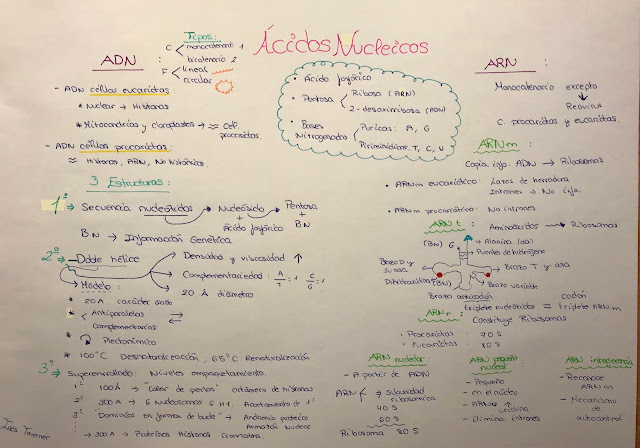 Ácidos Nucleicos
Tipos:
C monocatenario 1
bicatenario 2
F lineal
circular
ADN :
- ADN células eucariotas:
* Nuclear → Histonas
* Mitocondrias y cloroplastos → ≈ Cel. procariotas.
- ADN células procariotas:
≈ Histonas, ARN, No histónicas.
• Ácido fosfórico
• Pentosa Ribosa (ARN)
2-desoxirribosa (ADN)
• Bases Nitrogenadas Púricas: A, G
Pirimidínicas: T, C, U
3 Estructuras:
1º → Secuencia nucleótidos → Nucleósido → Pentosa
+ +
Ácido fosfórico BN
BN → Información Genética
2º → Doble hélice
Densidad y viscosidad ↑
Complementariedad: A/T = 1 C/G = 1
20 Å diámetro
Modelo:
* 20 A carácter
* Antiparalelas
Complementarias
* Plectonímico
* 100°C Desnaturalización, 65°C Renaturalización
3º → Superenrollado: Niveles empaquetamiento.
1º 100Å → "Collar de perlas" octámero de histonas
2º 300 A → 6 nucleosomas 6 H1. Acortamiento 1º
3º "Dominios en formas de bucle" → Andamio proteico
Armazón Nuclear
→ 300 A → Proteínas Histonas
ARN :
Monocatenario excepto
↓
Reovirus
C. procariotas y eucariotas.
ARNm :
Copia info. ADN → Ribosomas
• ARNm eucariótico: Lazos de herradura
Intrones → No info.
• ARNm procariótico: No intrones
ARN t : Aminoácidos → Ribosomas
(BN) G → Alanina (aa)
Puentes de hidrógeno
Brazo D y su asa
Brazo T y asa
Dihidrouridina (BN)
Brazo variable
Brazo anticodón
triplete nucleótidos = codón
triplete ARNm
ARN r : Constituye Ribosomas
• Procariotas 70 S
• Eucariotas 80 S
ARN nucleolar:
- A partir de ADN
ARN → Subunidad ribosómica
40 S
60 S
Ribosoma 80 S
ARN pequeño nuclear:
- Pequeño
- en el núcleo
- uridina
- Elimina intrones
ARN interferencia
- Reconoce ARNm
- Mecanismo de autocontrol